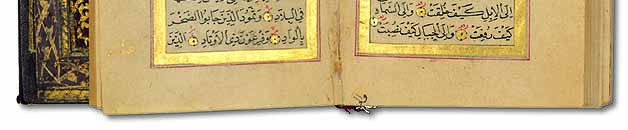 إِلَى الْإِبِلِ كَيْفَ خُلِقَتْ وَإِلَى السَّمَاءِ
كَيْفَ رُفِعَتْ وَإِلَى الْجِبَالِ كَيْفَ نُصِبَتْ
فِي الْبِلَادِ وَثَمُودَ الَّذِينَ جَابُوا الصَّخْرَ
بِالْوَادِ وَفِرْعَوْنَ ذِي الْأَوْتَادِ الَّذِينَ